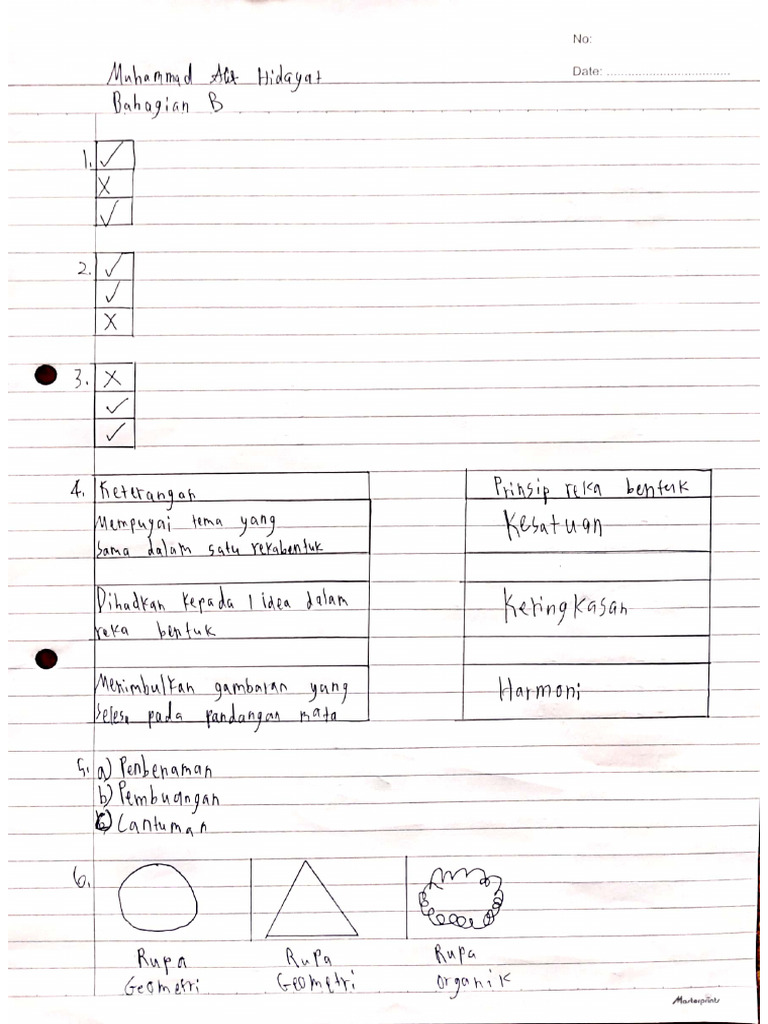 No:
Date: ..................................
Muhammad Hidayat
Bahagian B
1. ✓
X
✓
2. ✓
✓
X
3. X
✓
✓
4. Keterangan
Prinsip reka bentuk
Mempuyai tema yang
sama dalam satu rekabentuk
Kesatuan
Dihadkan kepada 1 idea dalam
reka bentuk
Keringkasan
Menimbulkan gambaran yang
selesa pada pandangan mata
Harmoni
5. a) Penbenaman
b) Pembuangan
c) Cantuman
6.
Rupa
Geometri
Rupa
Geometri
Rupa
organik
Masterprints